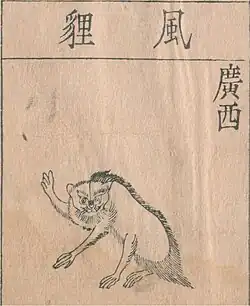 風貍
廣西